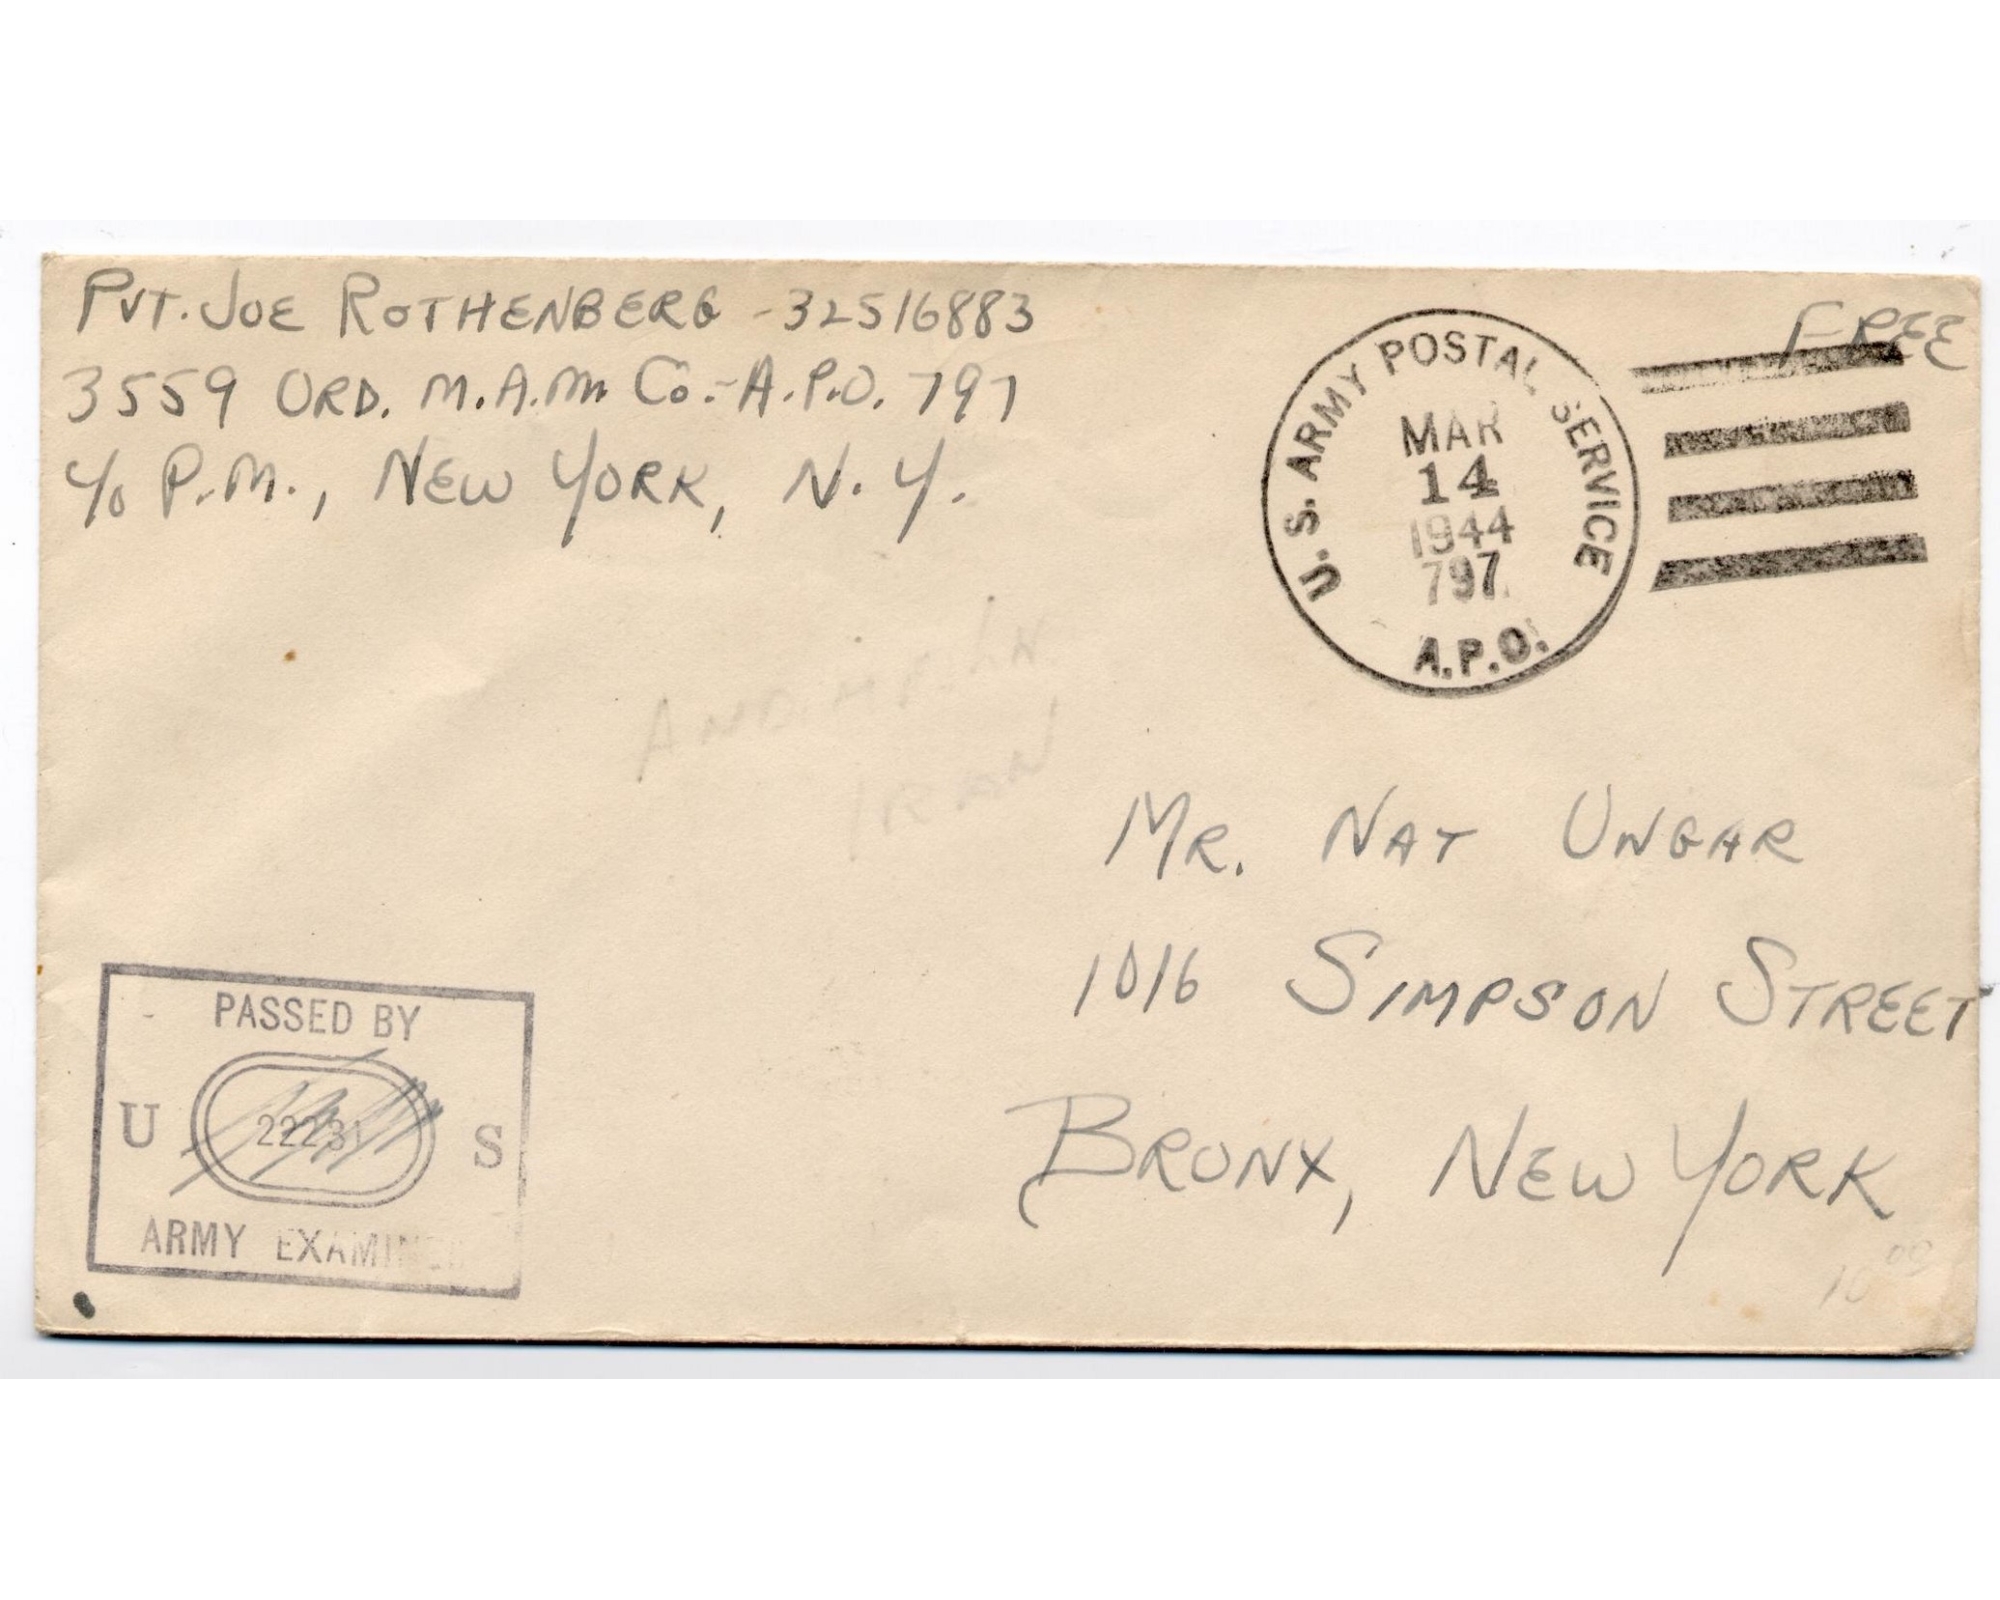 PVT. JOE ROTHENBERG - 32516883
3559 ORD. M.A.M. CO. - A.P.O. 797
c/o P.M., NEW YORK, N.Y.
FREE
U.S. ARMY POSTAL SERVICE
MAR
14
1944
797
A.P.O.
IRAN
MR. NAT UNGAR
1016 SIMPSON STREET
BRONX, NEW YORK
PASSED BY
U 22231 S
ARMY EXAMINER
10 00